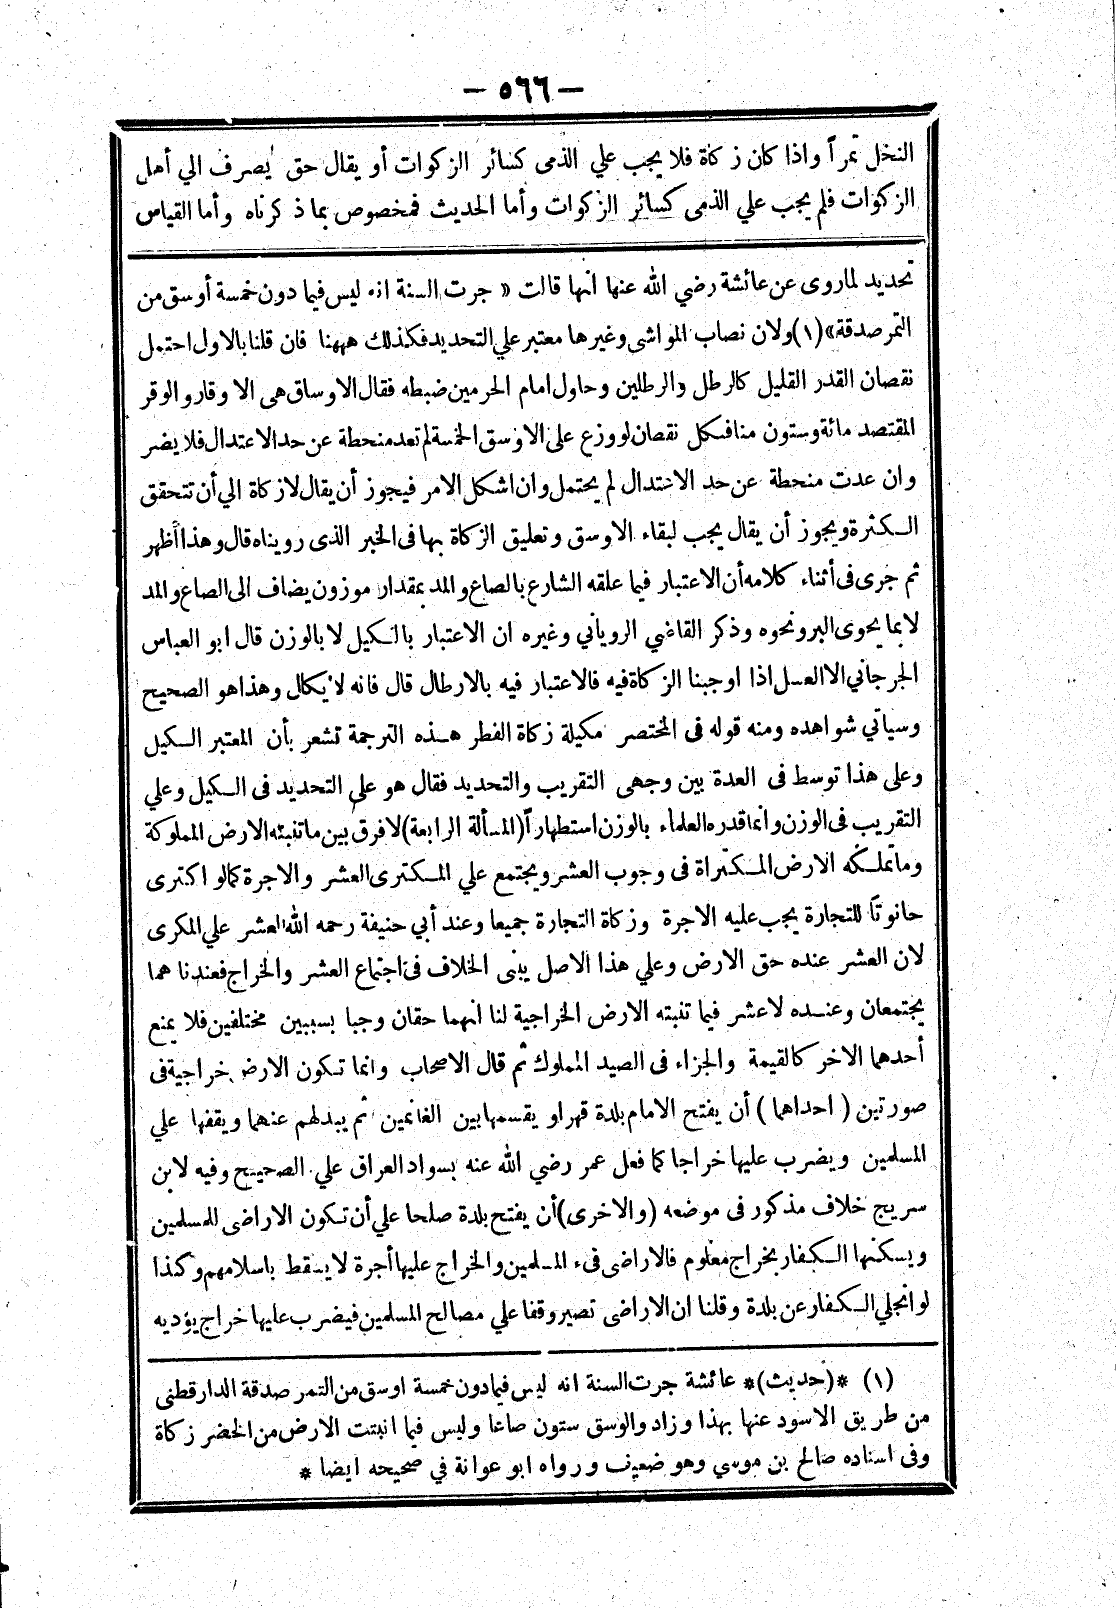 — ٥٦٦ —
النخل تمراً واذا كان زكاة فلا يجب علي الذمى كسائر الزكوات أو يقال حق يصرف الي أهل
الزكوات فلم يجب علي الذمى كسائر الزكوات وأما الحديث فمخصوص بما ذكرناه وأما القياس
تحديد لماروى عن عائشة رضي الله عنها انها قالت « جرت السنة انه ليس فيما دون خمسة أوسق من
التمر صدقة» (١) ولان نصاب المواشى وغيرها معتبر علي التحديد فكذلك ههنا فان قلنا بالاول احتمل
نقصان القدر القليل كالرطل والرطلين وحاول امام الحرمين ضبطه فقال الاوساق هى الاوقار والوقر
المقتصد مائة وستون منا فكل نقصان لو وزع على الاوسق الخمسة لم تعد منحطة عن حد الاعتدال فلا يضر
وان عدت منحطة عن حد الاعتدال لم يحتمل وان اشكل الامر فيجوز أن يقال لا زكاة الي أن تتحقق
الكثرة ويجوز أن يقال يجب لبقاء الاوسق وتعليق الزكاة بها فى الخبر الذى رويناه قال وهذا أظهر
ثم جرى فى أثناء كلامه أن الاعتبار فيما علقه الشارع بالصاع والمد بمقدار موزون يضاف الى الصاع والمد
لابما يحوى البر ونحوه وذكر القاضي الروياني وغيره ان الاعتبار بالكيل لا بالوزن قال ابو العباس
الجرجاني الا العسل اذا اوجبنا الزكاة فيه فالاعتبار فيه بالارطال قال فانه لا يكال وهذا هو الصحيح
وسيأتي شواهده ومنه قوله فى المختصر مكيلة زكاة الفطر هذه الترجمة تشعر بأن المعتبر الكيل
وعلى هذا توسط فى العدة بين وجهى التقريب والتحديد فقال هو على التحديد فى الكيل وعلي
التقريب فى الوزن وانما قدره العلماء بالوزن استظهاراً (المسألة الرابعة) لا فرق بين ما تنبته الارض المملوكة
وما تملكه الارض المكتراة فى وجوب العشر ويجتمع علي المكترى العشر والاجرة كما لو اكترى
حانوتاً للتجارة يجب عليه الاجرة وزكاة التجارة جميعا وعند أبي حنيفة رحمه الله العشر علي المكرى
لان العشر عنده حق الارض وعلي هذا الاصل ينبى الخلاف فى اجتماع العشر والخراج فعندنا هما
يجتمعان وعنده لا عشر فيما تنبته الارض الخراجية لنا انهما حقان وجبا بسببين مختلفين فلا يمنع
أحدهما الاخر كالقيمة والجزاء فى الصيد المملوك ثم قال الاصحاب وانما تكون الارض خراجية فى
صورتين ( احداهما ) أن يفتح الامام بلدة قهرا و يقسمها بين الغانمين ثم يبدلهم عنهما ويقفها علي
المسلمين ويضرب عليها خراجا كما فعل عمر رضي الله عنه بسواد العراق علي الصحيح وفيه لابن
سريج خلاف مذكور فى موضعه (والاخرى) أن يفتح بلدة صلحا علي أن تكون الاراضى للمسلمين
ويسكنها الكفار بخراج معلوم فالاراضى فىء المسلمين والخراج عليها أجرة لا يسقط باسلامهم وكذا
لو انجلي الكفار عن بلدة وقلنا ان الاراضى تصير وقفا علي مصالح المسلمين فيضرب عليها خراج يؤديه
(١) *(حديث)* عائشة جرت السنة انه ليس فيما دون خمسة اوسق من التمر صدقة الدارقطنى
من طريق الاسود عنها بهذا وزاد والوسق ستون صاعا وليس فيما انبتت الارض من الخضر زكاة
وفى اسناده صالح بن موسي وهو ضعيف ورواه ابو عوانة في صحيحه ايضا *